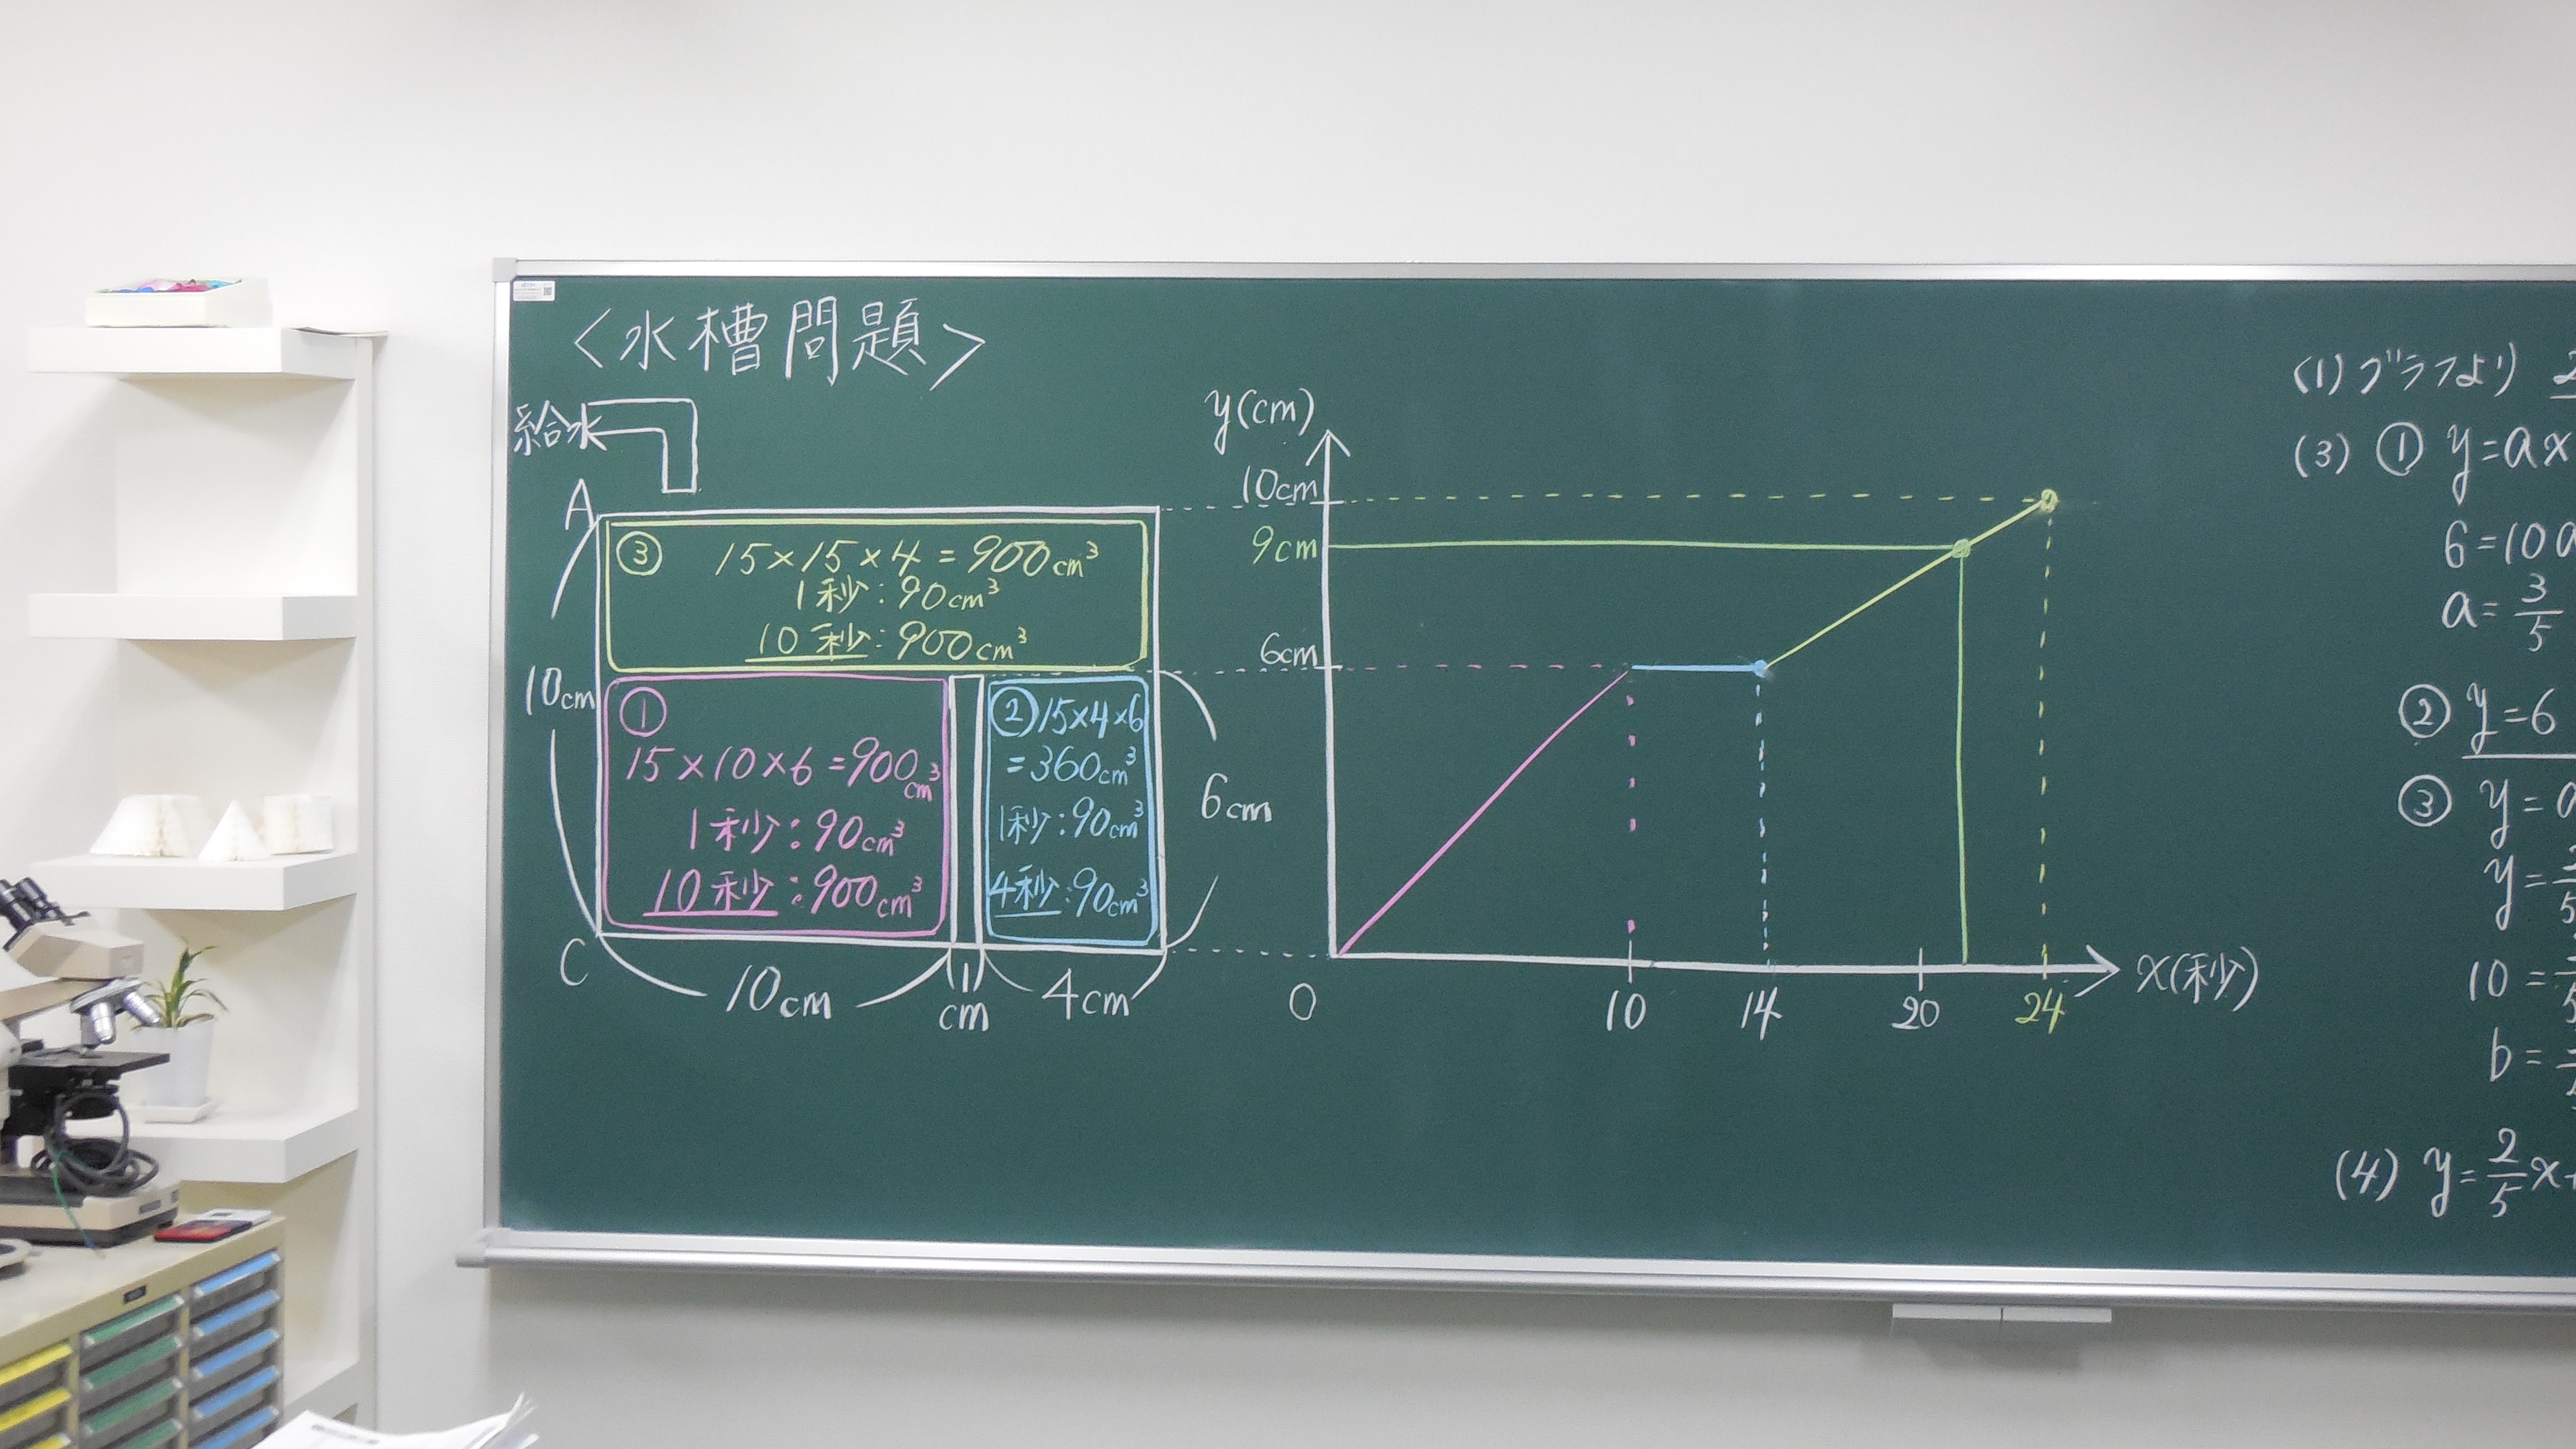 〈水槽問題〉
給水
A
③ 15×15×4=900cm³
1秒:90cm³
10秒:900cm³
10cm
①
15×10×6=900cm³
1秒:90cm³
10秒:900cm³
②15×4×6
=360cm³
1秒:90cm³
4秒:90cm³
6cm
C
10cm
1cm
4cm
y(cm)
10cm
9cm
6cm
0
10
14
20
24
x(秒)
(1)グラフより 2
(3) ① y=ax
6=10a
a=3/5
② y=6
③ y=a
y=2/5
10=
b=
(4) y=2/5x+